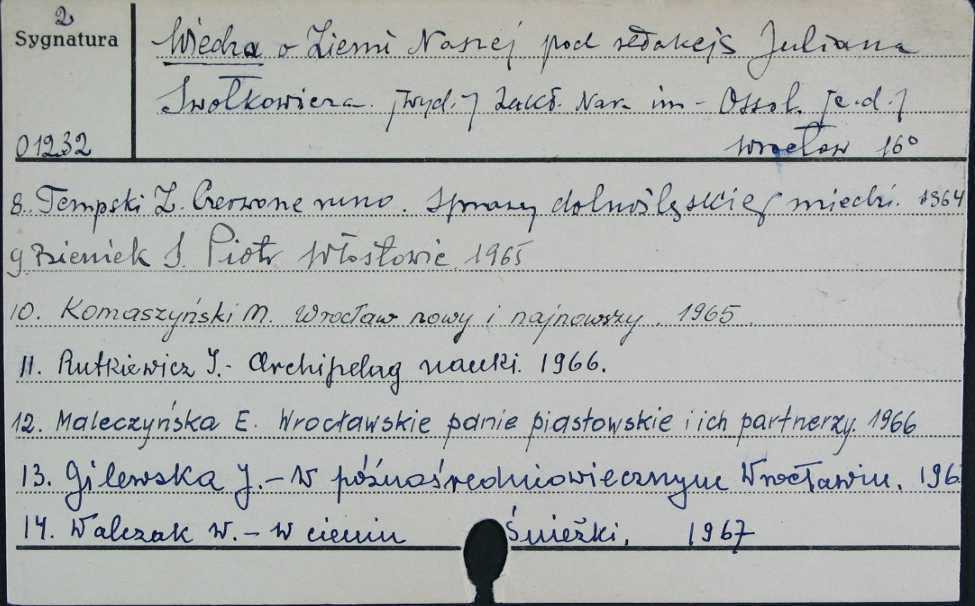 2
Sygnatura
Wiedza o Ziemi Naszej pod redakcją Juliana
Swołkowicza. [wyd.] Zakł. Nar. im - Ossol. [e.d.]
01232 Wrocław 16°
8. Tempski Z. Czerwone runo. Sprawy dolnośląskiej miedzi. 1964
9. Dzieniek S. Piotr Włostowic 1965
10. Komaszyński M. Wrocław nowy i najnowszy. 1965.
11. Rutkiewicz I. - Archipelag nauki. 1966.
12. Maleczyńska E. Wrocławskie panie piastowskie i ich partnerzy. 1966
13. Gilewska J. - W późnośredniowiecznym Wrocławiu. 196
14. Walczak W. - W cieniu Śnieżki. 1967